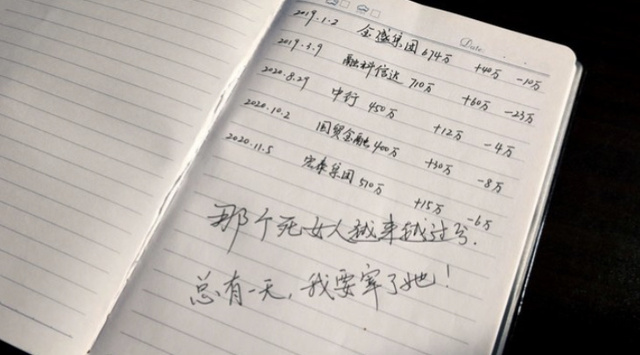 Date:
2019.1.2 金盛集团 674万 +40万 -10万
2019.3.9 融科信达 710万 +60万 -23万
2020.8.29 中行 450万 +12万 -4万
2020.10.2 国贸金融 400万 +30万 -8万
2020.11.5 宏泰集团 510万 +15万 -6万
那个死女人越来越过分.
总有一天,我要宰了她!